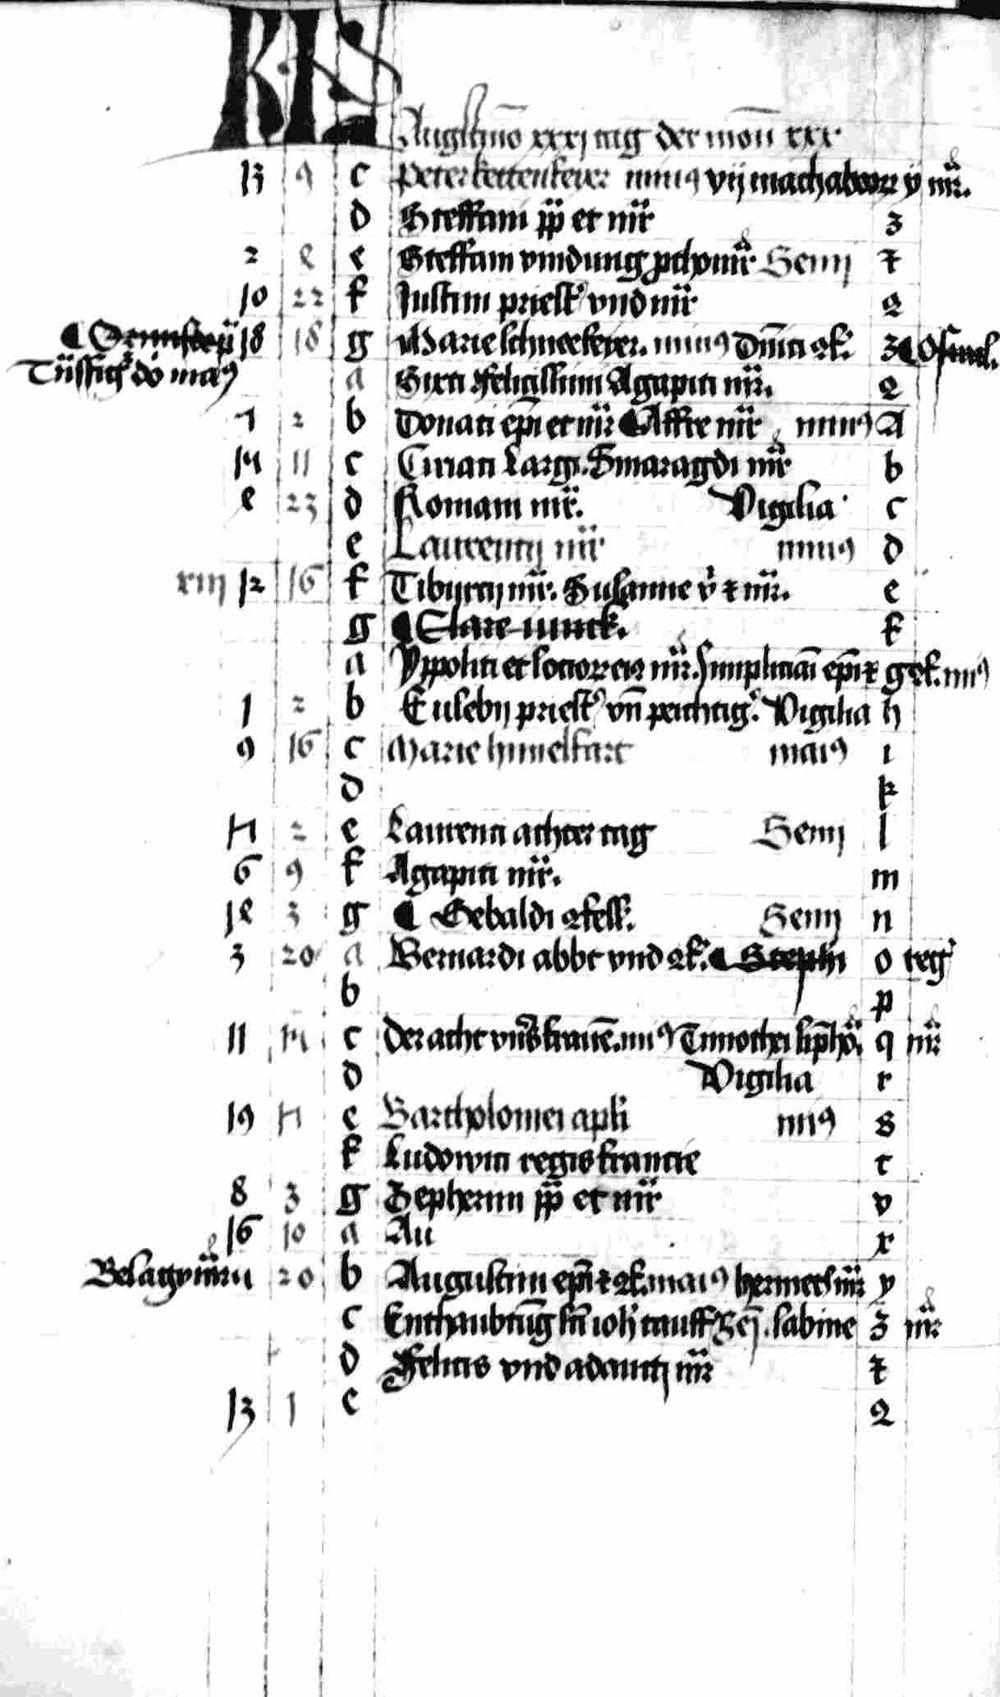 KL
Augstmō xxxj tag der mon xxx
13 9 c Peter kettenfeyer minus vij machabeorz y mr̄.
d Steffani pp̄ et mr̄ z
2 8 e Steffani vindung Semj
10 22 f Justini priest' vnd mr̄ 2
18 18 g Marie schneefeyer. minus Dn̄ici 9f. z
a Sixti Felicissimi Agapiti mr̄. 2
7 2 b Donati ep̄i et mr̄ Affre mr̄ minus A
14 11 c Ciriaci Largi. Smaragdi mr̄ b
8 23 d Romani mr̄. Vigilia c
e Laurentij mr̄ minus d
xiij 12 16 f Tiburcij mr̄. Susanne v̄ et mr̄. e
g Clare f
a Yppoliti et sociorz eius mr̄. Simpliciani ep̄i et g 9f. min9
1 2 b Eusebij priest' vn̄ peichtig'. Vigilia h
9 16 c Marie himelfart maius i
d k
17 2 e Laurenti achter tag Semj l
6 9 f Agapiti mr̄. m
18 3 g Sebaldi 9fess'. Semj n
3 20 a Bernardi abbt vnd 9f. Steph̄i o reg'
b p
11 14 c Der acht vns' frauē. min9 Timothei q mr̄
d Vigilia r
19 17 e Bartholomei apl̄i min9 s
f Ludowici regis francie t
8 3 g Zepherini pp̄ et mr̄ v
16 10 a Au x
Belagij mr̄ 20 b Augustini ep̄i et 9f. maius hermetis mr̄ y
c Enthaubtūg sn̄t ioh' tauff Sem̄. sabine z mr̄
d Felicis vnd adaucti mr̄
13 1 e 2